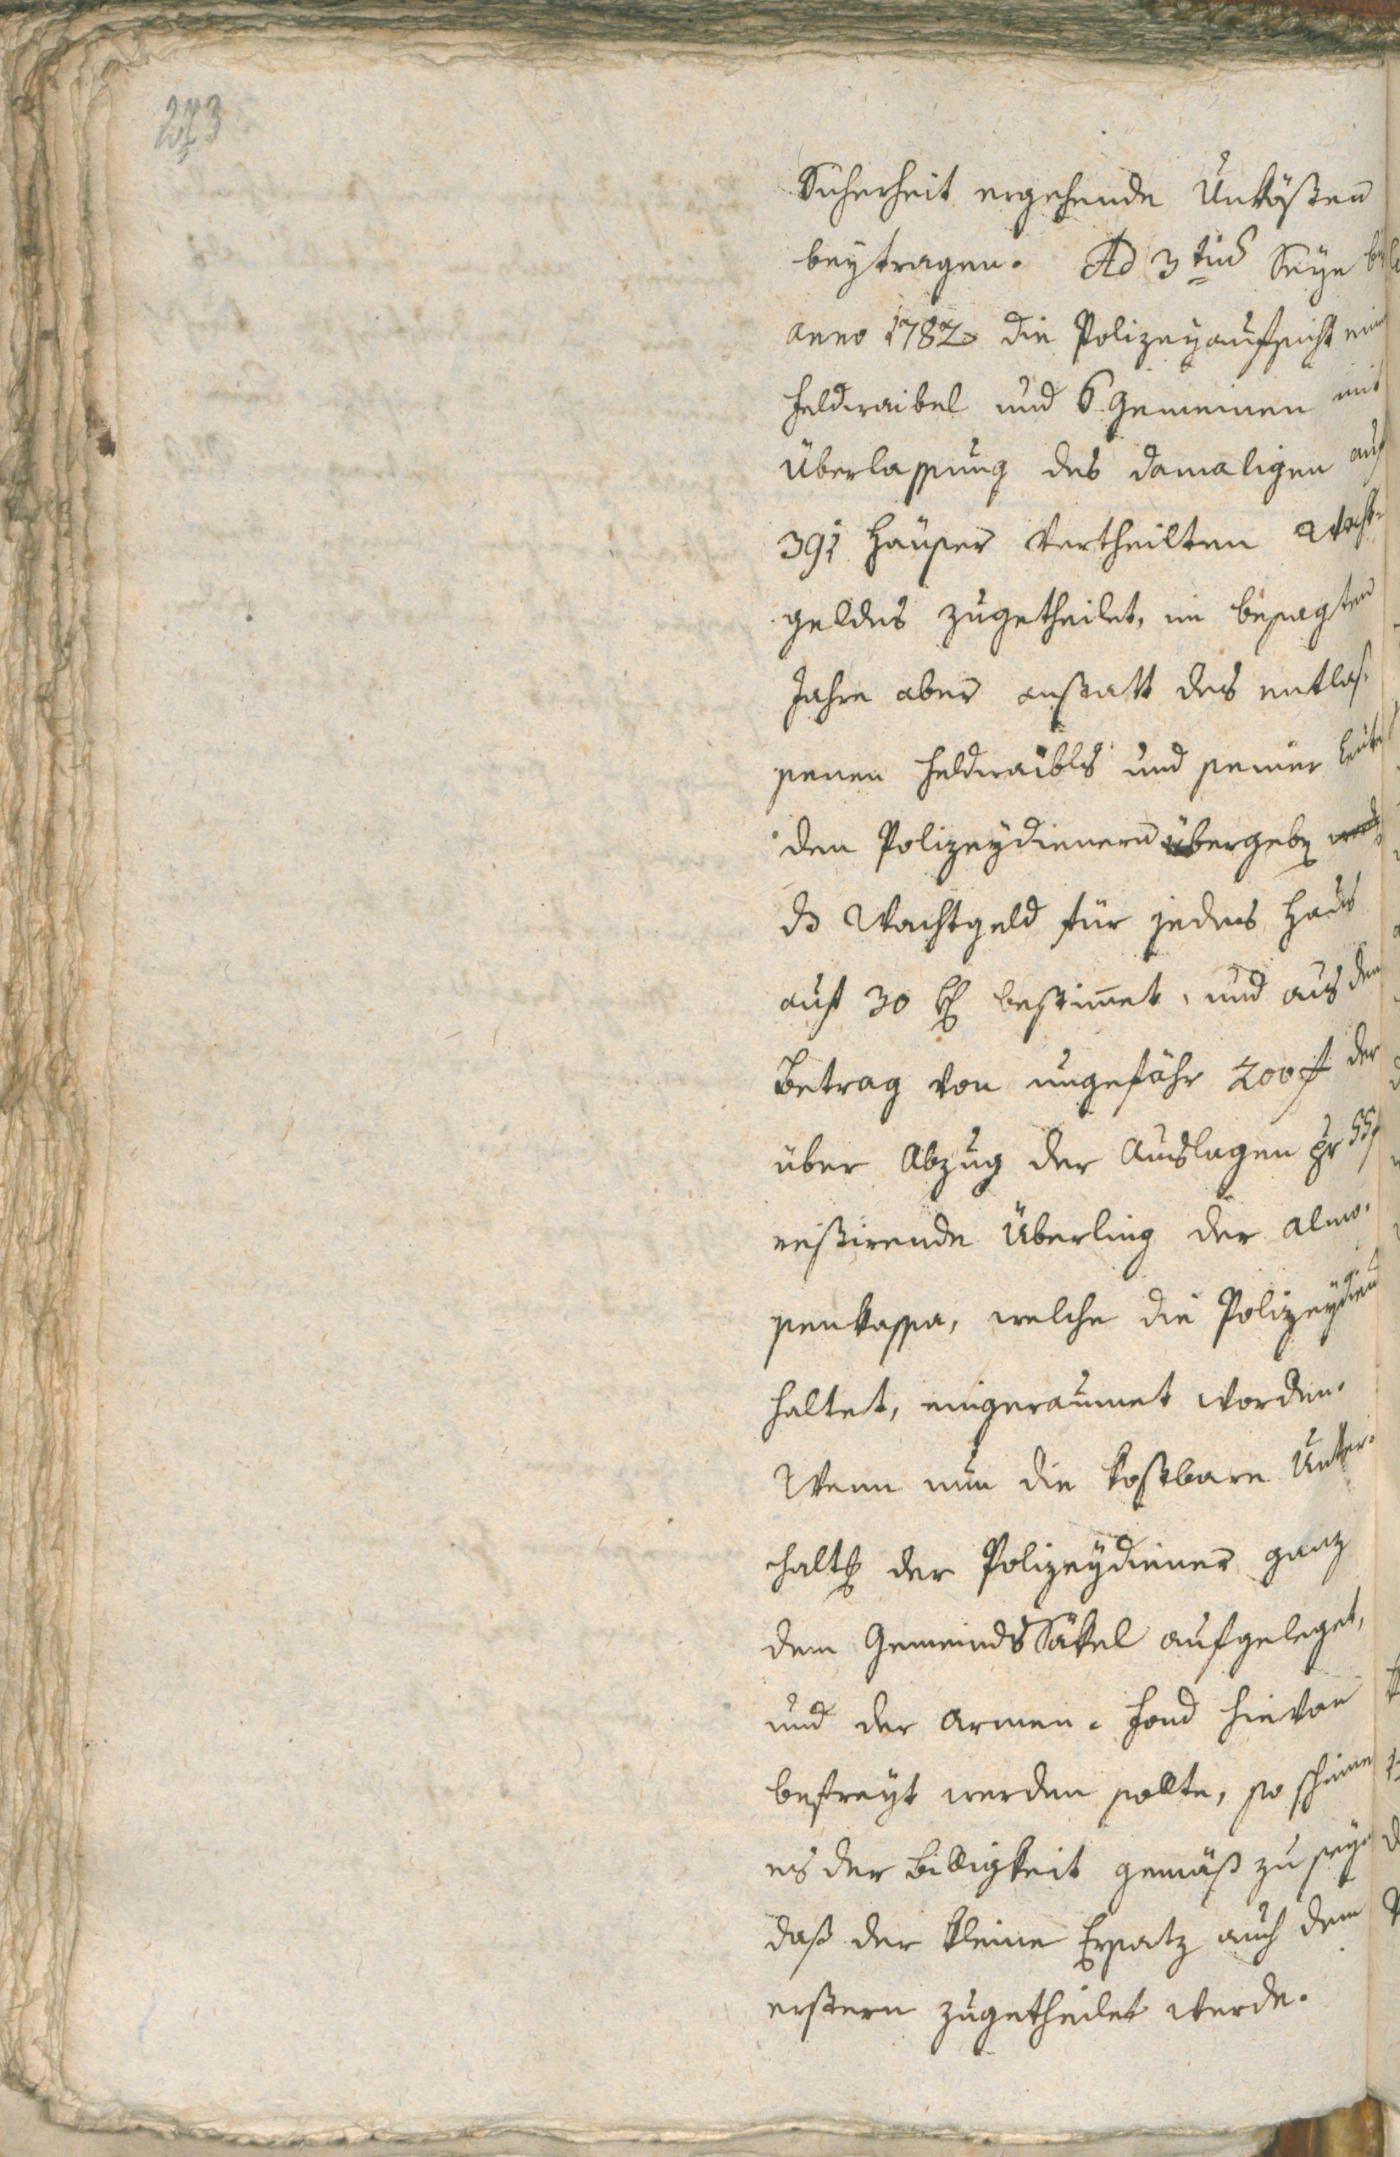 273
Sicherheit ergehende Unkößten
beytragen. Ad 3tius Seye bis
anno 1782 die Polizeyaufsicht einem
Feldwaibel und 6 Gemeinen mit
Überlassung des damaligen auf
391 Häuser vertheilten Wacht-
geldes zugetheilet, im besagten
Jahre aber anstatt des entlas-
senen Feldwaibls und seiner Leute
den Polizeydienern übergeben
dz Wachtgeld für jedes Haus
auf 30 kr bestimet, und aus dem
Betrag von ungefähr 200 f der
über Abzug der Auslagen pr 55 f
restirende Überling der Almo-
senkassa, welche die Polizeydiener
haltet, eingeraumet worden.
Wenn nun die kostbare Unter-
haltg der Polizeydiener ganz
dem Gemeinds Säkel aufgeleget,
und der Armen-Fond hievon
befreyt werden sollte, so scheine
es der Billigkeit gemäß zu seyn
daß der kleine Ersatz auch dem
erstern zugetheilet werde.